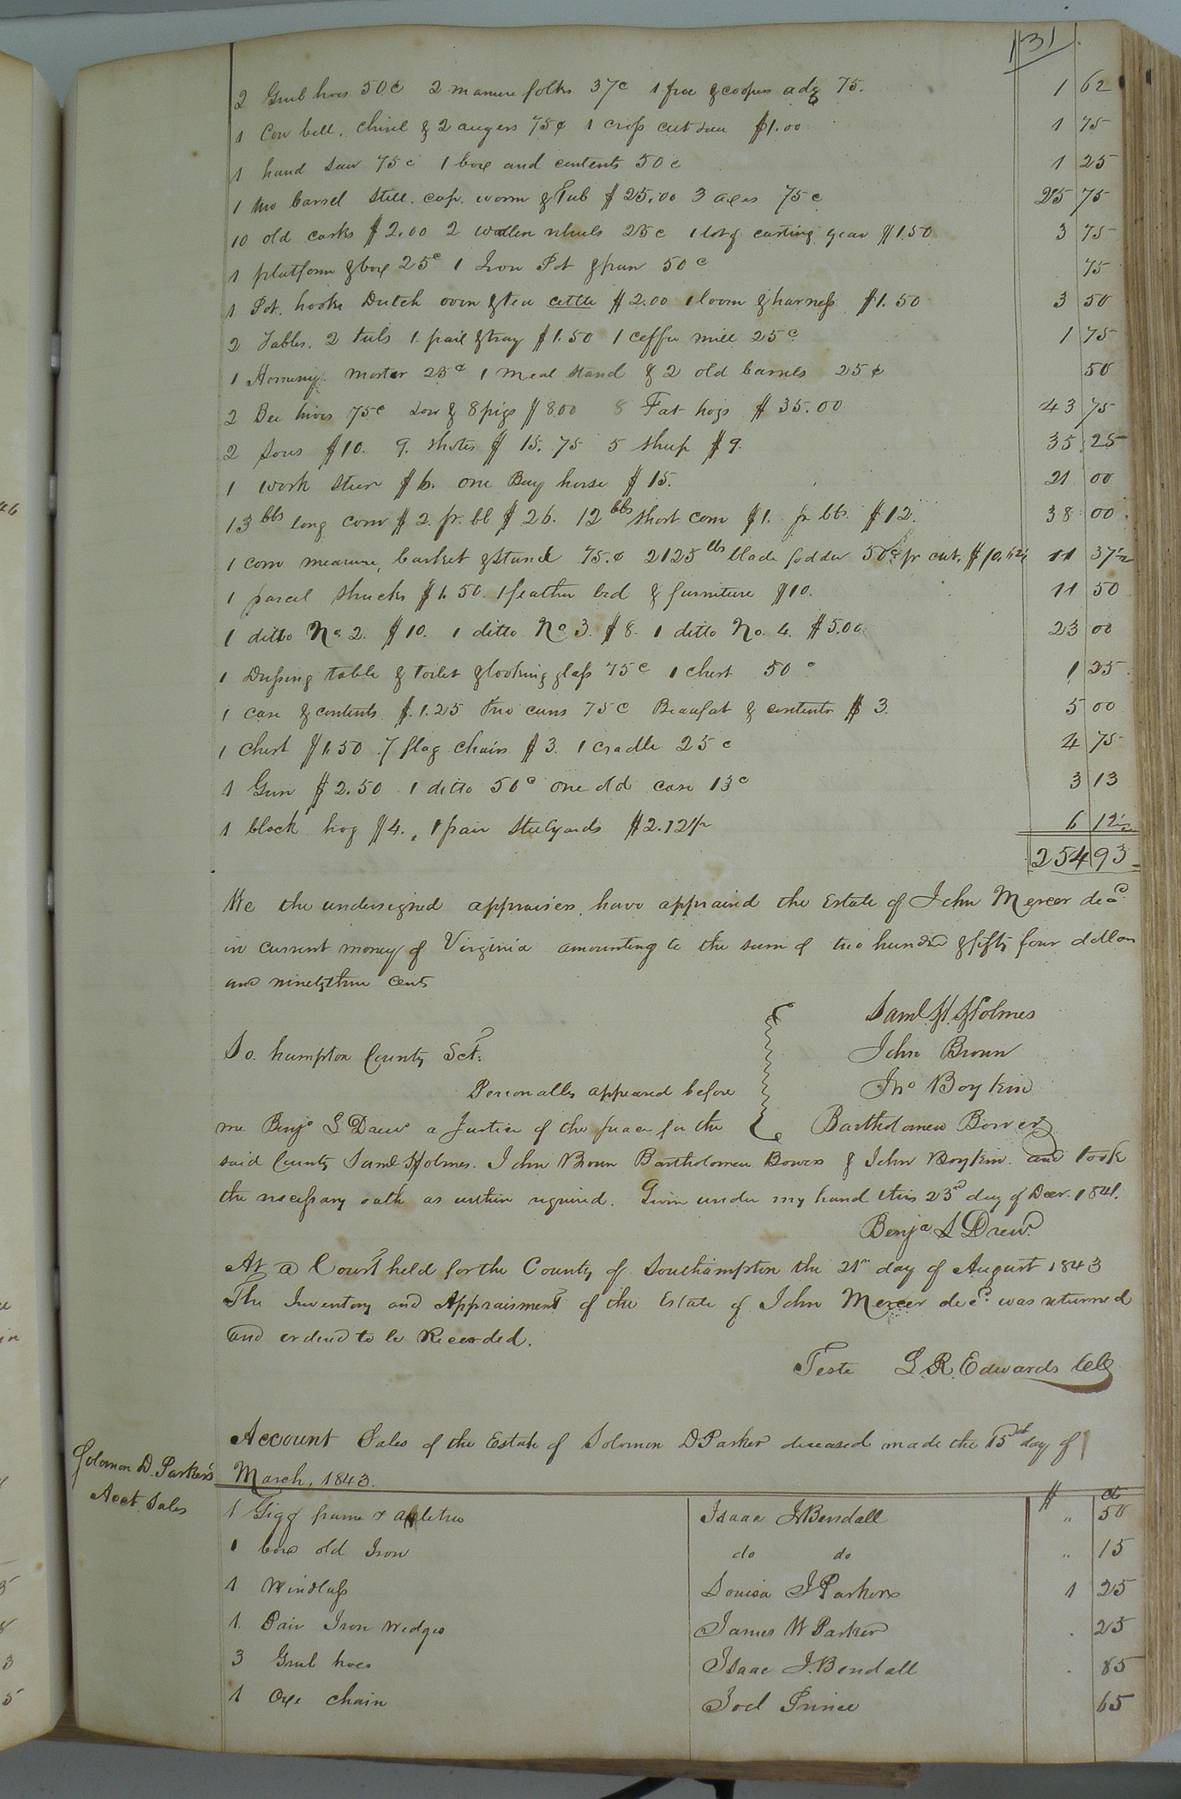 131
2 Grub hoes 50c 2 manure folks 37c 1 froe & coopers adz 75. 1 62
1 Cow bell, chisel & 2 augers 75¢ 1 cross cut saw $1.00 1 75
1 hand saw 75c 1 box and contents 50c 1 25
1 two barrel still, cap, worm & Tub $25.00 3 axes 75c 25 75
10 old casks $2.00 2 wollen wheels 25c 1 lot of carting gear $1.50 3 75
1 platform & box 25c 1 Iron Pot & pan 50c 75
1 Pot, hooks Dutch oven & tea cettle $2.00 1 loom & harness $1.50 3 50
2 Tables, 2 tubs 1 pail & tray $1.50 1 coffee mill 25c 1 75
1 Hominy mortar 25c 1 meal stand & 2 old barrels 25¢ 50
2 Bee hives 75c Sow & 8 pigs $8 00 8 Fat hogs $35.00 43 75
2 Sows $10. 9. shotes $15.75 5 sheep $9. 35 25
1 work steer $6. one Bay horse $15. 21 00
13 bbs long corn $2. pr. bb $26. 12 bbs short corn $1. pr bb. $12. 38 00
1 corn measure, basket & stand 75.¢ 2125 lbs blade fodder 50c pr cwt, $10,62½ 11 37½
1 parcel shucks $1.50. 1 feather bed & furniture $10. 11 50
1 ditto No. 2. $10. 1 ditto No 3. $8. 1 ditto No. 4. $5.00 23 00
1 Dressing table & toilet & looking glass 75c 1 chest 50c 1 25
1 case & contents $.1.25 two cuns 75c Beaufat & contents $3. 5 00
1 chest $1.50 7 flag chairs $3. 1 cradle 25c 4 75
1 Gun $2.50 1 ditto 50c one old case 13c 3 13
1 block hog $4., 1 pair steelyards $2.12½ 6 12½
254 93
We the undersigned appraisers, have appraised the Estate of John Mercer decd.
in current money of Virginia amounting to the sum of two hundred & fifty four dollars
and ninety three cents
Saml. H. Holmes
John Brown
Jno Boykin
Bartholomew Bowers
So. hampton County Sct:
Personally appeared before
me Benja S Drew a Justice of the peace for the
said County Saml Holmes. John Brown Bartholomew Bowers & John Boykin and took
the necessary oath as within required. Given under my hand this 23rd day of Decr. 1841.
Benja S Drew
At a Court held for the County of Southampton the 21st day of August 1843
The Inventory and Appraisment of the Estate of John Mercer decd. was returned
and ordered to be Recorded.
Teste L. R. Edwards Clk
Solomon D. Parker's
Acct Sales
Account Sales of the Estate of Solomon D Parker deceased made the 15th day of
March, 1843.
$ ct
1 Gigg frame & axletree Isaac J. Bendall " 50
1 box old Iron do do " 15
1 Windlass Louisa J Parker 1 25
1. Pair Iron wedges James W Parker . 25
3 Grub hoes Isaac J. Bendall . 85
1 Oxe chain Joel Prince 65